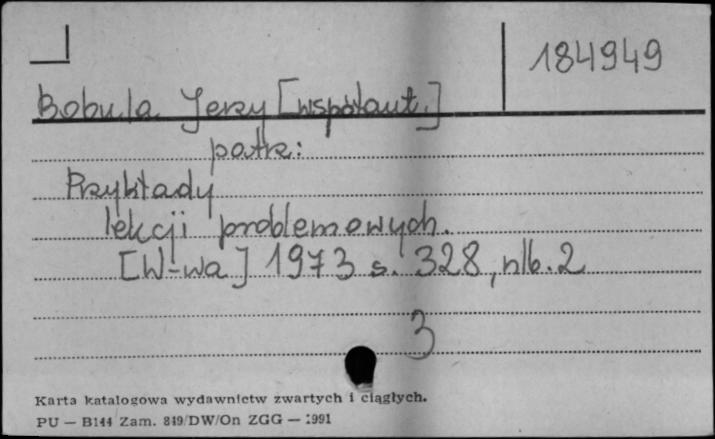 184949
Bobula Jerzy [współaut.]
patrz:
Przykłady
lekcji problemowych.
[W-wa] 1973 s. 328, nlb. 2
3
Karta katalogowa wydawnictw zwartych i ciągłych.
PU — B144 Zam. 849/DW/On ZGG — 1991